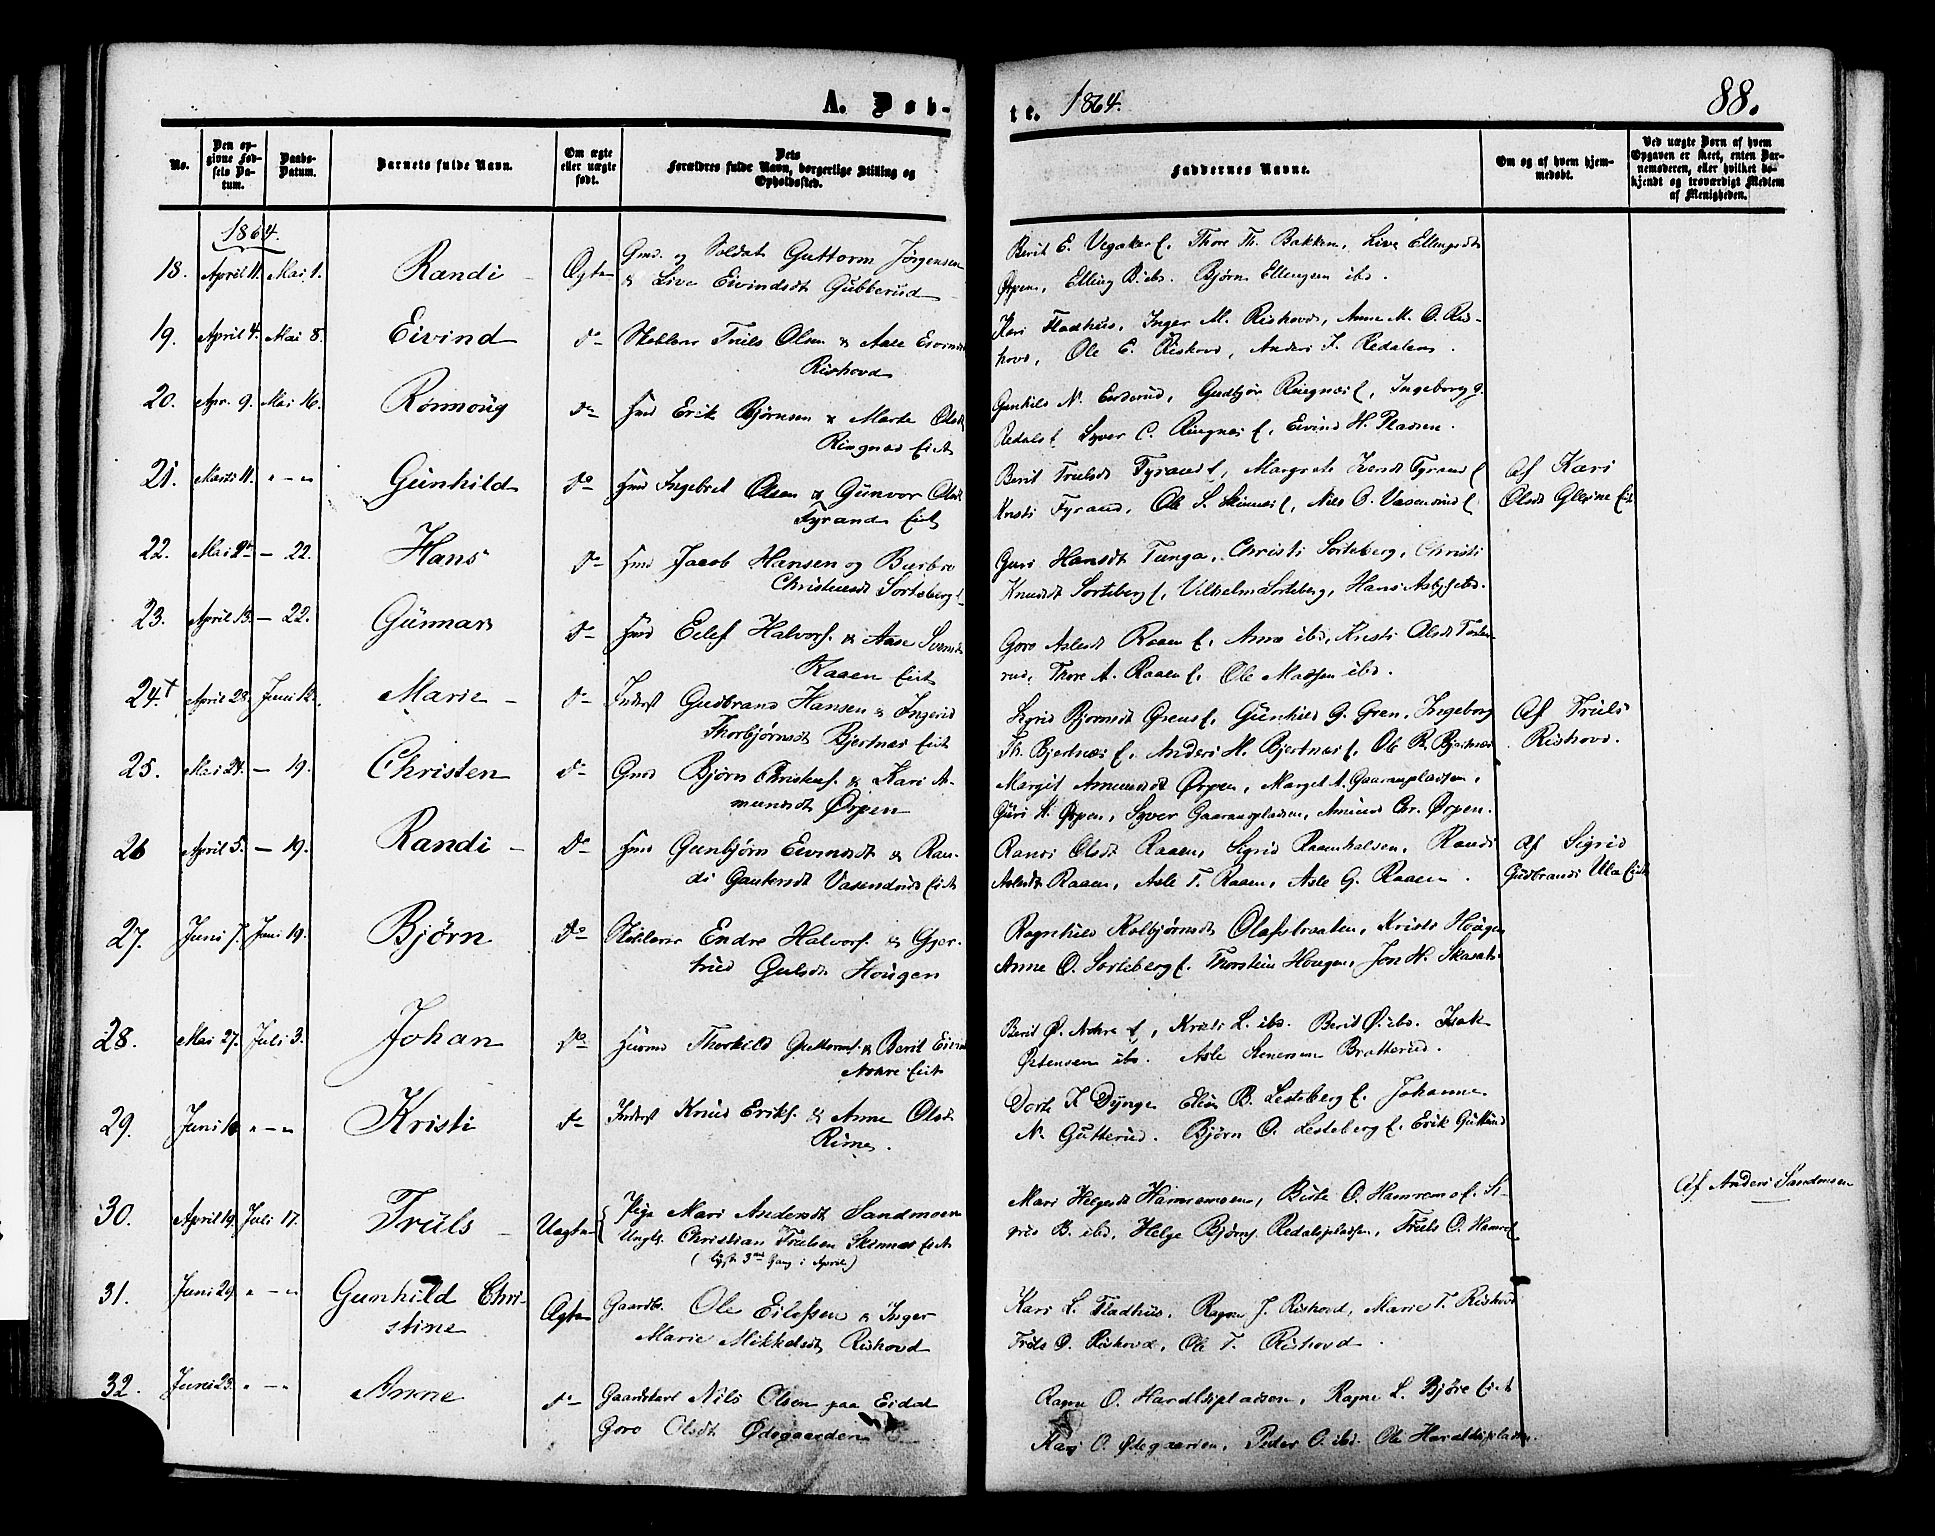 A. Døb-
te. 1864.
88.
No.
Den op-
givne Fød-
sels Da-
tum.
Daabs-
Datum.
Barnets fulde Navn.
Om ægte
eller uægte
født.
Dets
Forældres fulde Navn, borgerlige Stilling og
Opholdssted.
Faddernes Navne.
Om og af hvem hjem-
medøbt.
Ved uægte Børn af hvem
Opgaven er skeet, enten Bar-
nemoderen, eller hvilket be-
kjendt og troværdigt Medlem
af Menigheden.
1864.
18. April 11. Mai 1. Randi Ægte Gmd. og Soldat Guttorm Jørgensen
& Live Eivindsdt Gubberud
Berit E. Vegaker E. Thore Th. Bakken, Live Ellingsdt
Ørpen, Elling B. ibd. Bjørn Ellingsen ibd.
19. April 4. Mai 8. Eivind do Truls Olsen & Aase
Rishovd
Kari Fladhus, Inger M. Rishovd, Anne M. O. Ris-
hovd, Ole E. Rishovd, Anders Redalen.
20. Apr. 9. Mai 16. Rønnoug do Hmd Erik Bjørnsen & Marte Olsdt
Ringnes Eiet
Gudbjør Ringnes E, Ingeborg G.
Redals E, Syver C. Ringnes E, Eivind H. Pladsen.
21. Marts 11. " - " Gunhild do Hmd Ingebret Olsen & Gunvor Olsdt
Tyrand Eiet
Berit Trulsdt Tyrand E, Margrete Tyrand E
Kristi Tyrand, Ole S. Skinnes E, Nils O. Vasendrud E
Af Kari
Olsdt Eiet
22. Mai - 22. Hans do Hmd Jacob Hansen og Barbro
Christensdt Sorteberg E
Guri Hansdt Tunga, Christi Sorteberg, Christi
Knudsdt Sorteberg E, Vilhelm Sorteberg, Hans ibd.
23. April 13. - 22. Gunnar do Hmd Eilef Halvors. & Aase Svendsdt
Raaen Eiet
Goro Aslesdt Raaen E. Anne ibd, Kristi Olsdt
rud, Thore A. Raaen E. Ole Madsen ibd.
24.+ April 28. Juni 12. Marie do Inderst Gudbrand Hansen & Ingerid
Thorbjørnsdt Bjertnes Eiet
Sigrid Bjørnsdt Grens E, Gunhild G. Gren, Ingeborg
Th. Bjertnes E, Anders H. Bjertnes E, Ole Bjertnes
Af Truls
Rishovd.
25. Mai 21. - 19. Christen do Gmd Bjørn Christens. & Kari A-
mundsdt Ørpen
Margit Amundsdt Ørpen, Marget A. Gaaranpladsen,
Guri Ørpen, Syver Gaaranpladsen, Amund Chr. Ørpen.
26 April 5. - 19. Randi do Hmd Gunbjørn Eivindsdt & Ran-
di Gautersdt Vasendrud Eiet
Randi Olsdt Raaen, Sigrid Raaenhalsen, Randi
Aslesdt Raaen, Asle T. Raaen, Asle G. Raaen.
Af Sigrid
Gudbrands Ula Eiet
27. Juni 7. Juni 19. Bjørn do Endre Halvors. & Gjer-
trud Gulsdt Hougen
Ragnhild Kolbjørnsdt Olafsbraaten, Kristi Hougen
Anne O. Sorteberg E. Thorstein Hougen, Jon H.
28. Mai 27. Juli 3. Johan do Huusmd Thorkild Guttorms. & Berit
Nohre Eiet
Berit Ø. Nohre E, Kristi L. ibd. Berit Ø. ibd. Isak
Petersen ibd. Asle Stenersen Bratterud.
29. Juni " - " Kristi do Inderst Knud Eriks. & Anne Olsdt
Rime.
Dorte K Dynge B. Lesteberg E. Johanne
N. Gutterud. Bjørn O. Lesteberg E. Erik Gutterud
30. April 19. Juli 17. Truls Uægte Pige Mari Andersdt Sandmoen
Ungk. Christian Trulsen Skinnes Eiet
(lyst 3die Gang i April)
Mari Helgesdt Hamremoen, O. Hamremo E. Si-
grid B. ibd, Helge Bjørns. Redalspladsen, Truls O. Hamre E
Af Anders Sandmoen
31. Juni 29. " - " Gunhild Chri-
stine Ægte Gaardbr. Ole Eilefsen & Inger
Marie Mikkelsdt Rishovd
Kari L. Fladhus, Ragne J. Rishovd, Marie T. Rishovd
Truls O. Rishovd, Ole T. Rishovd.
32. Juni 23. " - " Anne do Nils Olsen paa Eidal
Goro Olsdt Ødegaarden
Ragne O. Haraldspladsen, Ragne L. Bjøre Eiet
Kari O. Ødegaarden, Peder O. ibd. Ole Haraldspladsen.